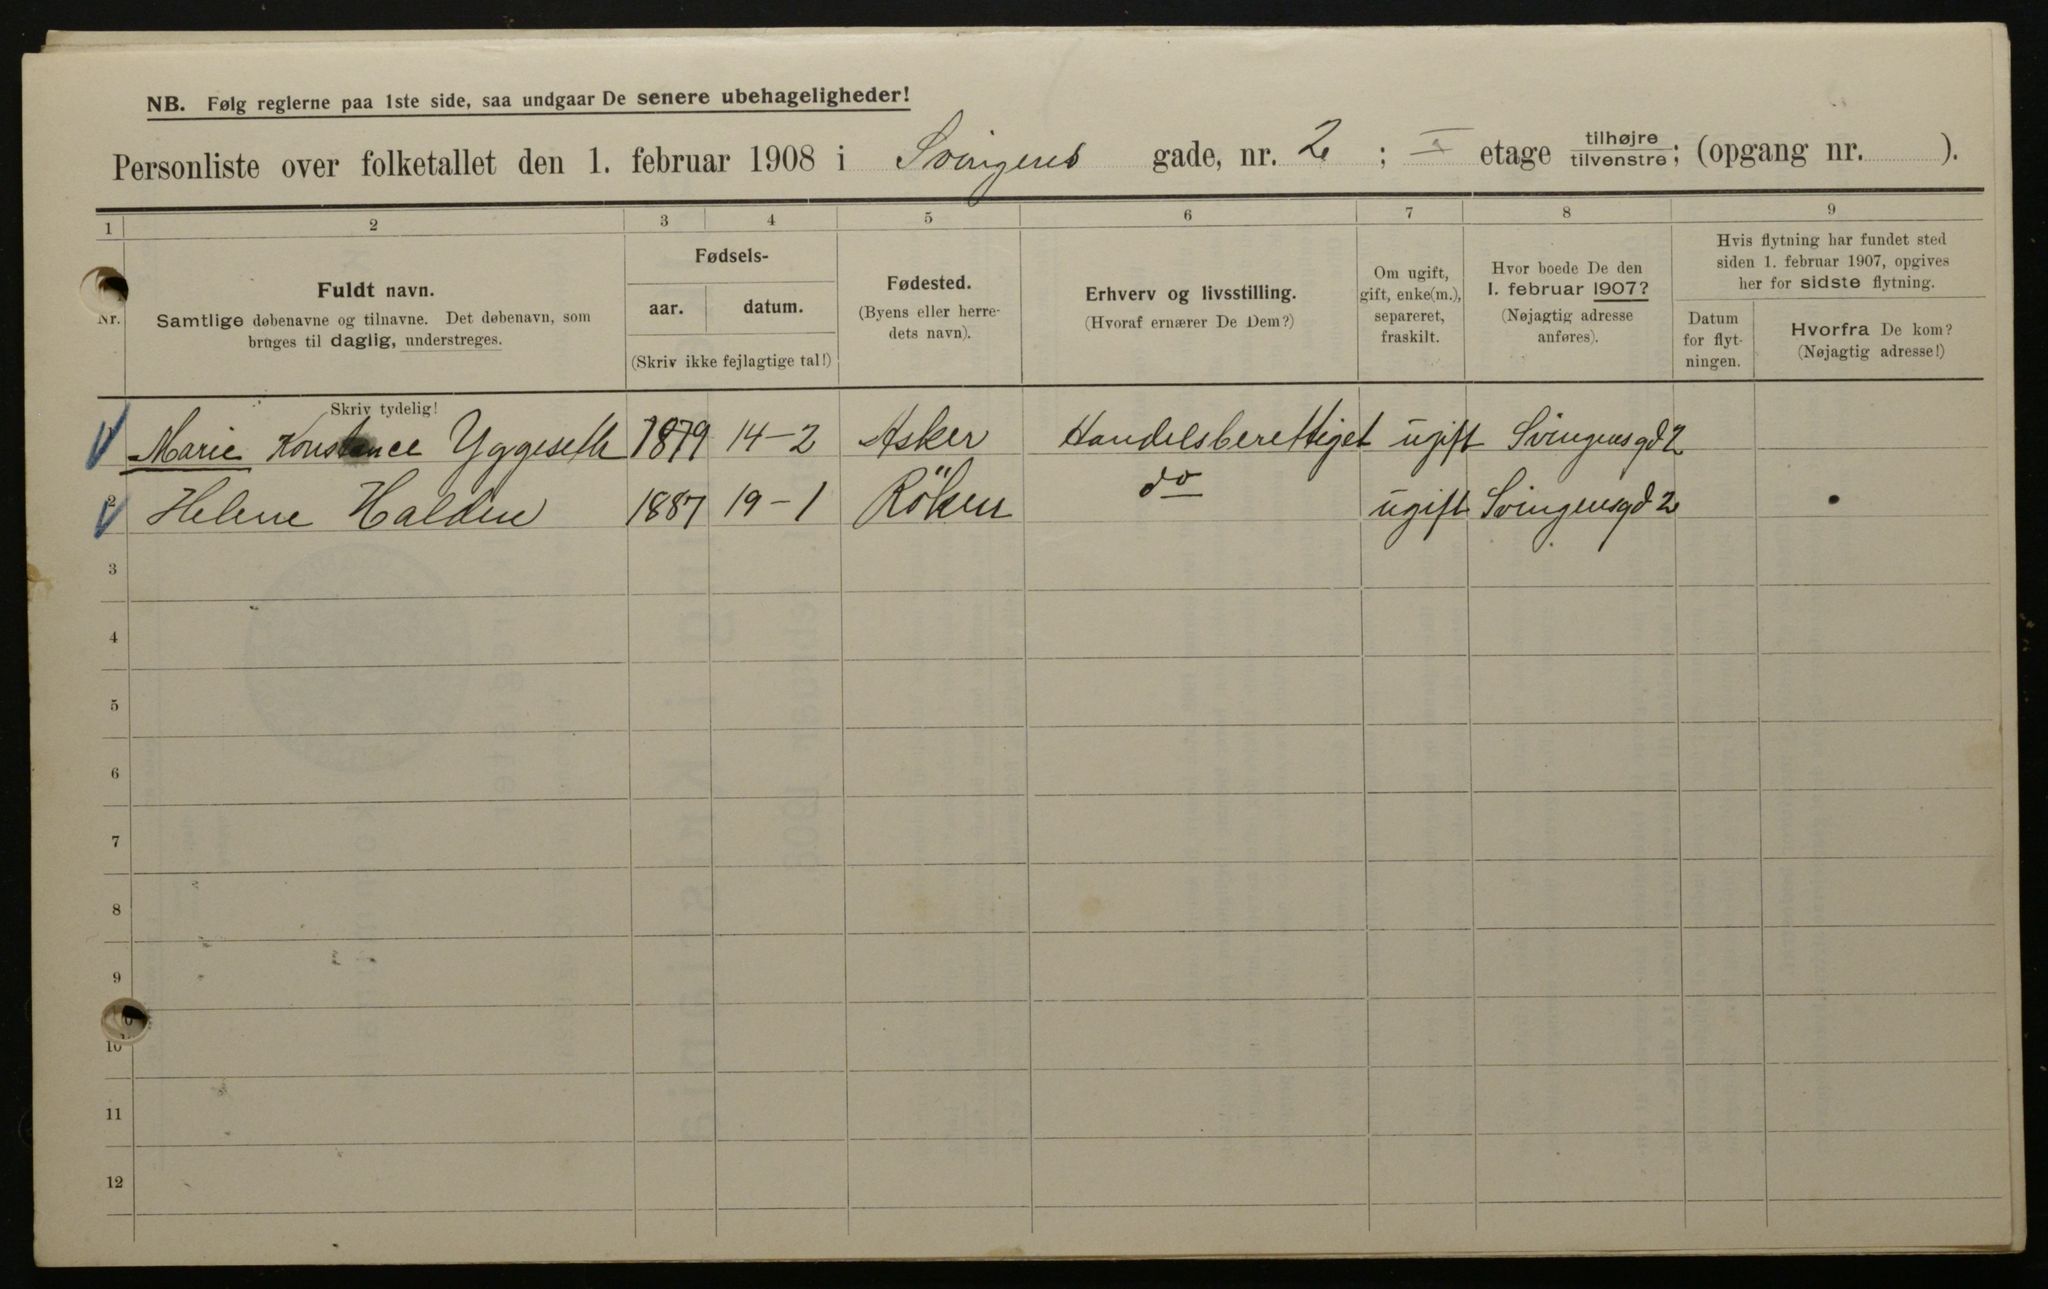 NB. Følg reglerne paa 1ste side, saa undgaar De senere ubehageligheder!
Personliste over folketallet den 1. februar 1908 i Svingens gade, nr. 2 ; I etage tilhøjre/tilvenstre; (opgang nr. ).
1 2 3 4 5 6 7 8 9
Nr.
Fuldt navn.
Samtlige døbenavne og tilnavne. Det døbenavn, som
bruges til daglig, understreges.
Skriv tydelig!
Fødsels-
aar. datum.
(Skriv ikke fejlagtige tal!)
Fødested.
(Byens eller herre-
dets navn).
Erhverv og livsstilling.
(Hvoraf ernærer De Dem?)
Om ugift,
gift, enke(m.),
separeret,
fraskilt.
Hvor boede De den
1. februar 1907?
(Nøjagtig adresse
anføres).
Hvis flytning har fundet sted
siden 1. februar 1907, opgives
her for sidste flytning.
Datum
for flyt-
ningen.
Hvorfra De kom?
(Nøjagtig adresse!)
Marie Konstance Yggeseth 1879 14-2 Asker Handelsberettiget ugift Svingensgd 2
2 Helene Halden 1887 19-1 Röken do ugift Svingensgd 2
3
4
5
6
7
8
9
10
11
12